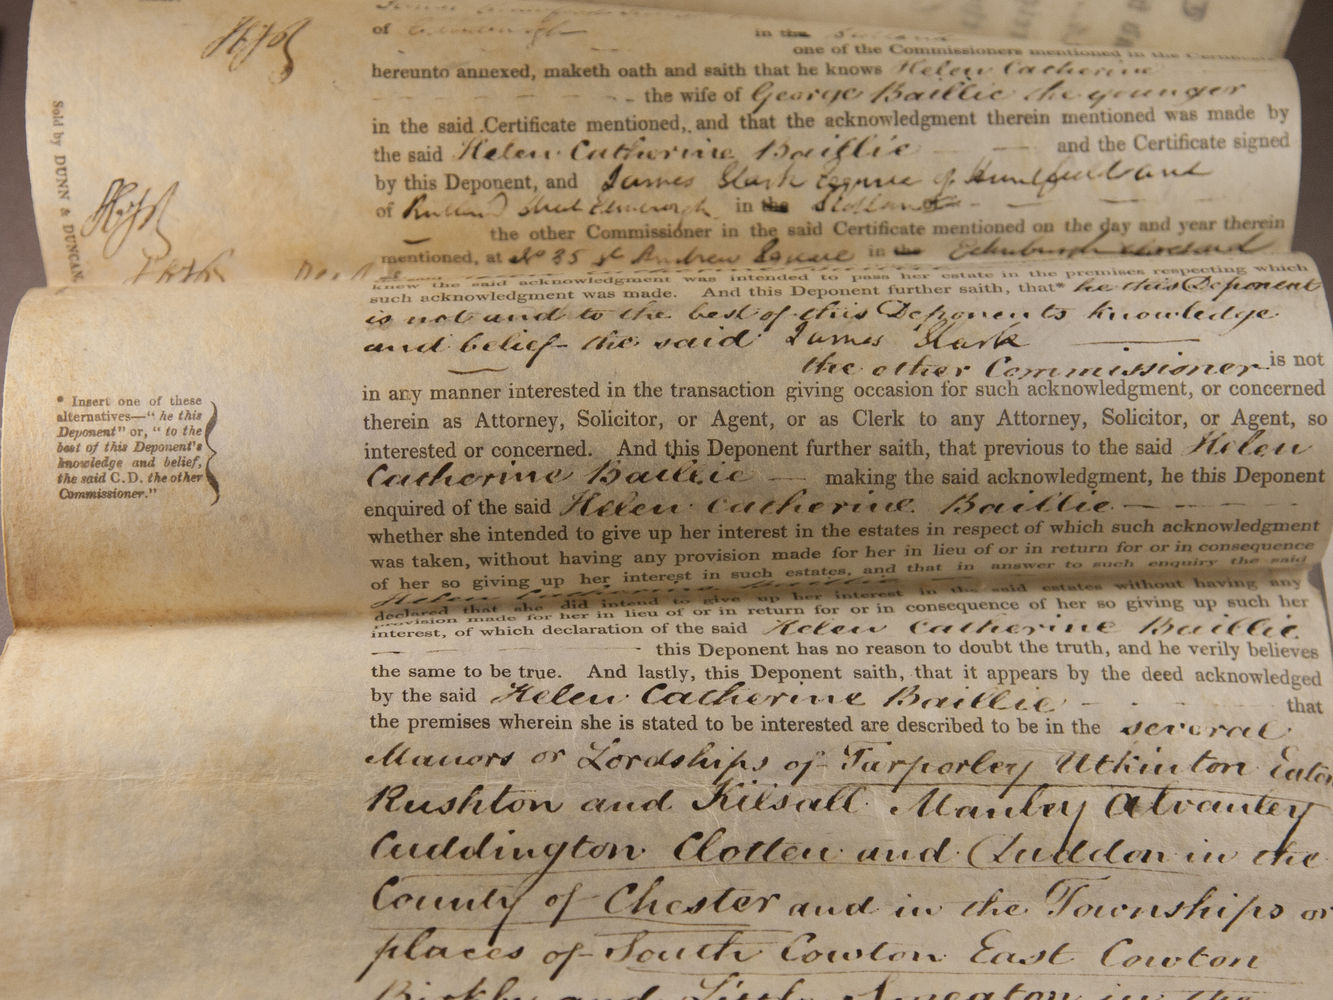 of
in the
one of the Commissioners mentioned in the
hereunto annexed, maketh oath and saith that he knows Helen Catherine
the wife of George Baillie the younger
in the said Certificate mentioned, and that the acknowledgment therein mentioned was made by
the said Helen Catherine Baillie and the Certificate signed
by this Deponent, and James Stark Esquire of and
of Rutland Street Edinburgh in the Scotland
the other Commissioner in the said Certificate mentioned on the day and year therein
mentioned, at No 35 St Andrew Square in the Edinburgh aforesaid
knew the said acknowledgment was intended to pass her estate in the premises respecting which
such acknowledgment was made. And this Deponent further saith, that* he this Deponent
is not and to the best of this Deponents knowledge
and belief the said James Stark
the other Commissioner is not
in any manner interested in the transaction giving occasion for such acknowledgment, or concerned
therein as Attorney, Solicitor, or Agent, or as Clerk to any Attorney, Solicitor, or Agent, so
interested or concerned. And this Deponent further saith, that previous to the said Helen
Catherine Baillie making the said acknowledgment, he this Deponent
enquired of the said Helen Catherine Baillie
whether she intended to give up her interest in the estates in respect of which such acknowledgment
was taken, without having any provision made for her in lieu of or in return for or in consequence
of her so giving up her interest in such estates, and that in answer to such enquiry the said
Helen Catherine Baillie
declared that she did intend to give up her interest in the said estates without having any
provision made for her in lieu of or in return for or in consequence of her so giving up such her
interest, of which declaration of the said Helen Catherine Baillie
this Deponent has no reason to doubt the truth, and he verily believes
the same to be true. And lastly, this Deponent saith, that it appears by the deed acknowledged
by the said Helen Catherine Baillie that
the premises wherein she is stated to be interested are described to be in the several
Manors or Lordships of Tarporley Utkinton Eaton
Rushton and Kilsall Manley Alvanley
Cuddington Clotten and Duddon in the
County of Chester and in the Townships or
places of South Cowton East Cowton
Birkby and Little Smeaton in the
Sold by DUNN & DUNCAN
* Insert one of these
alternatives—"he this
Deponent" or, "to the
best of this Deponent's
knowledge and belief,
the said C.D. the other
Commissioner."